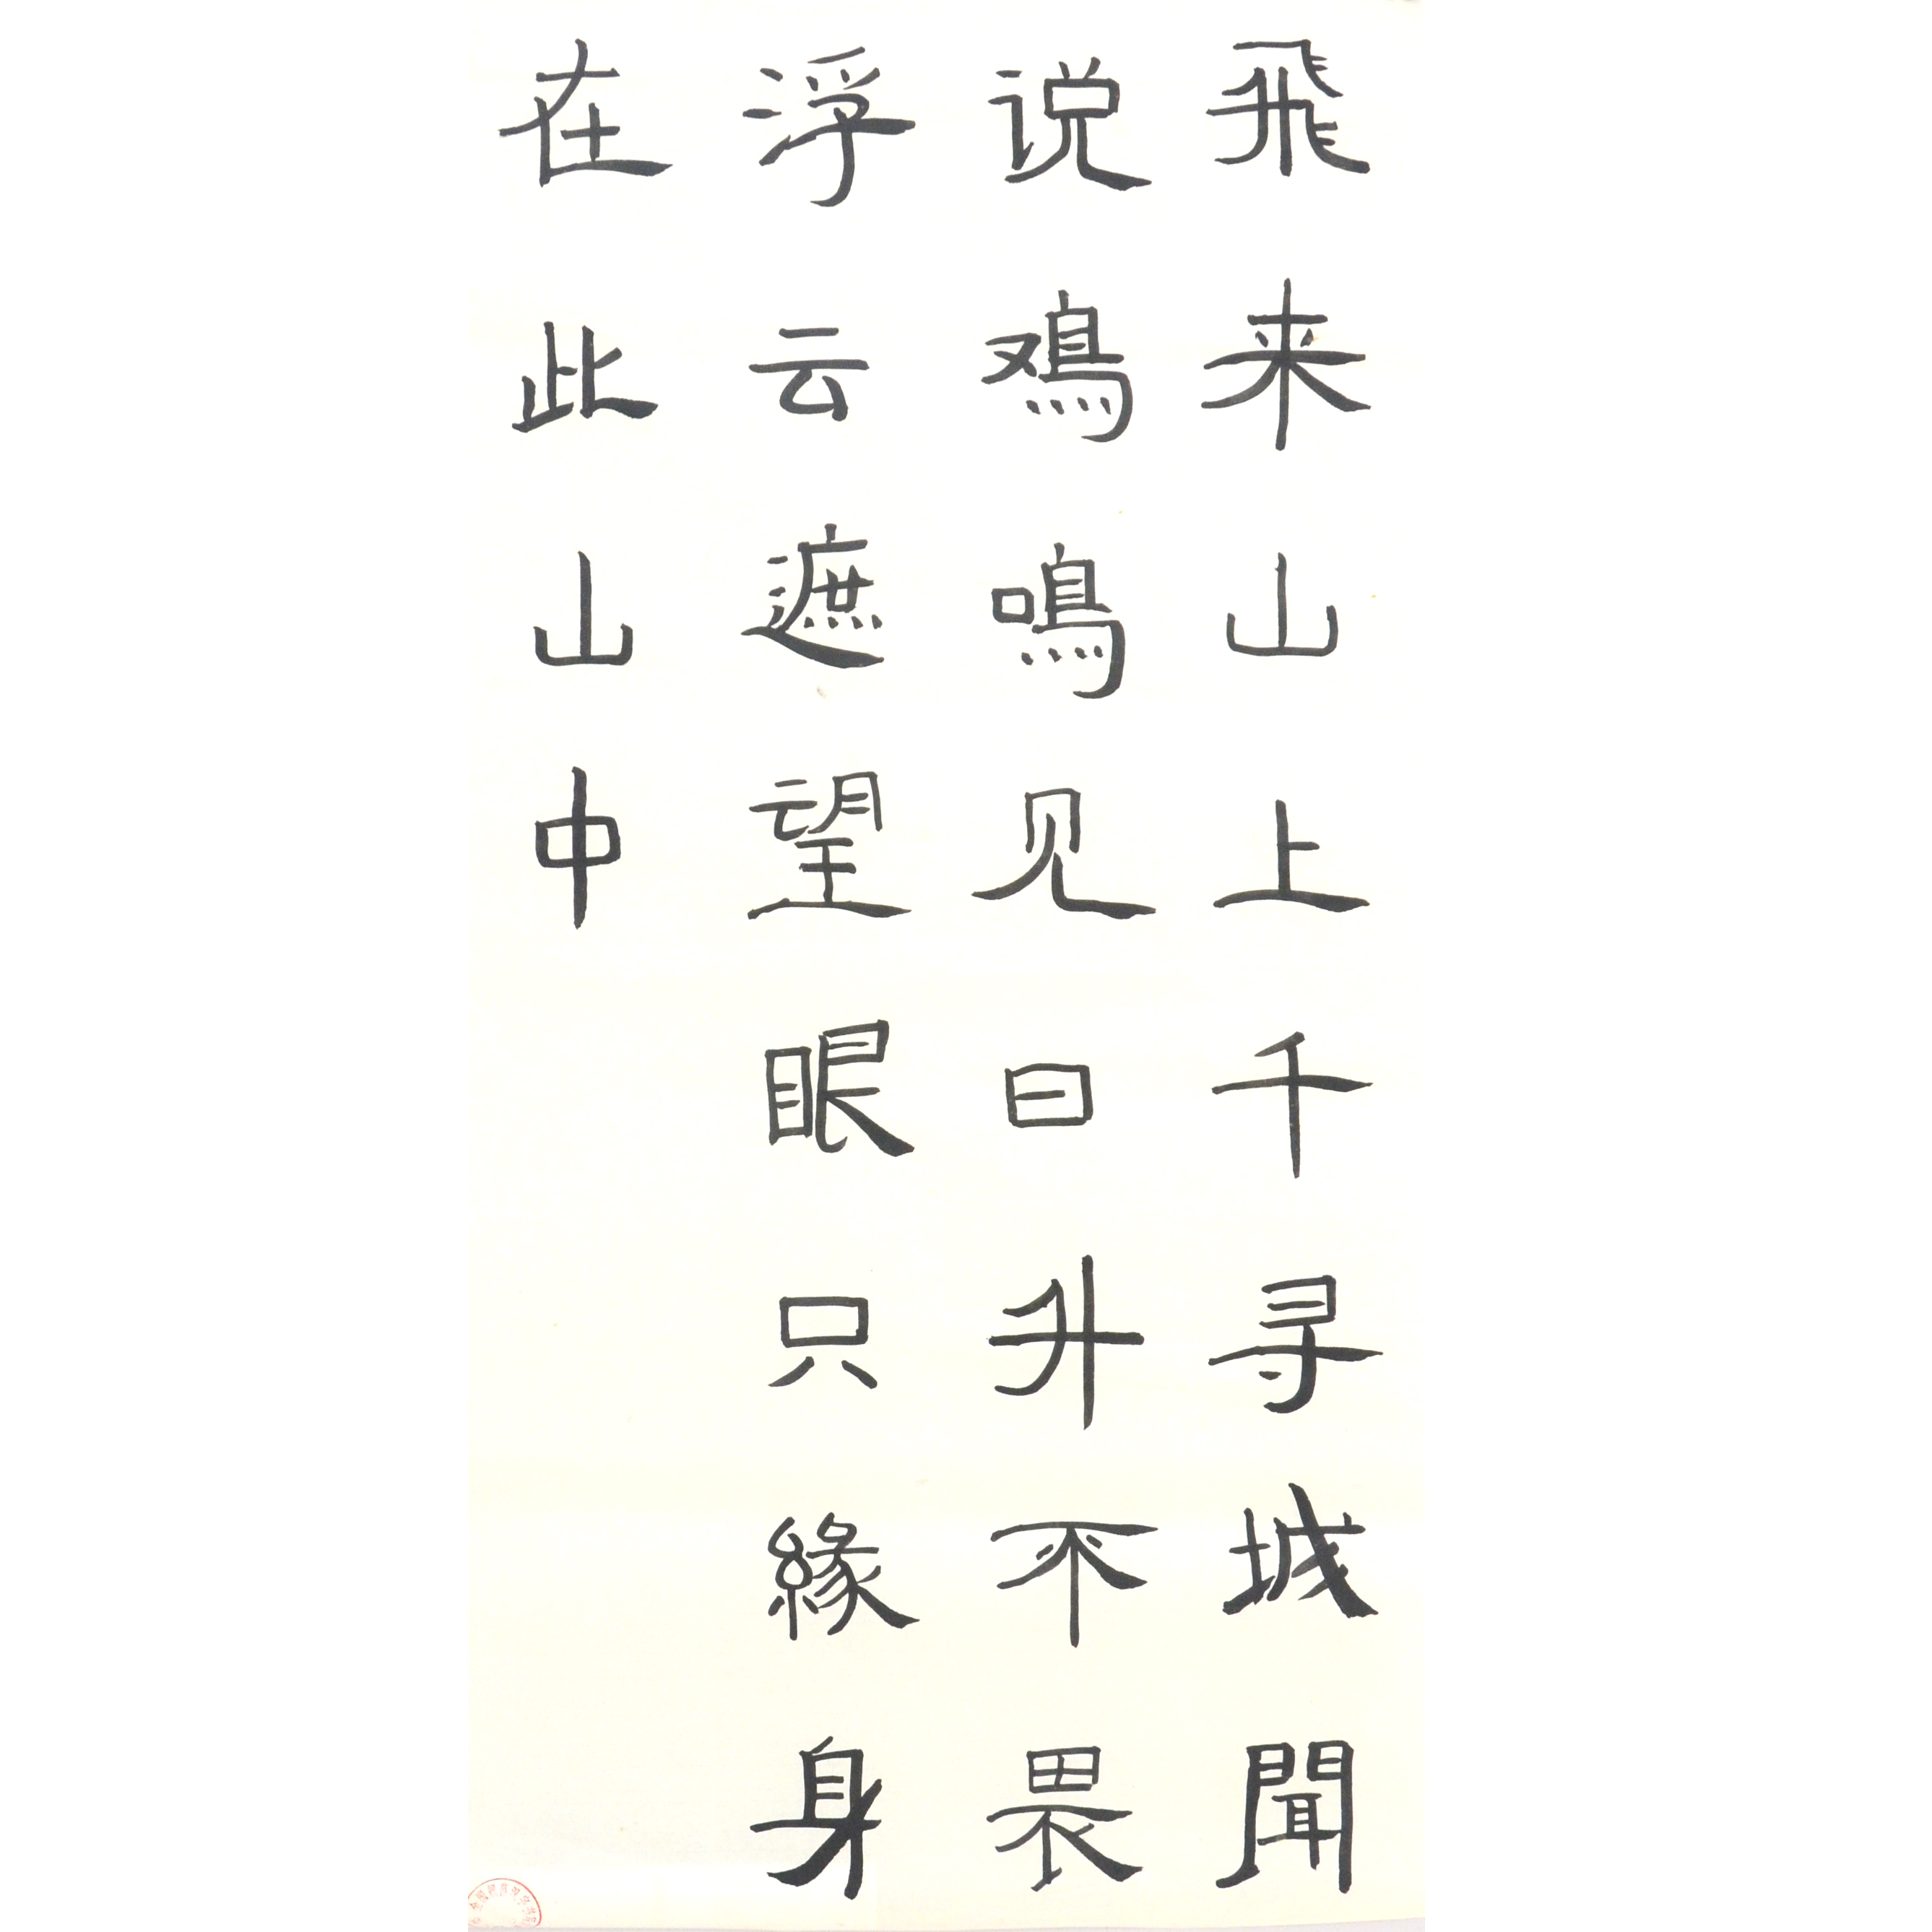 飛来山上千寻城聞
说鳮鳴见日升不畏
浮云遮望眼只緣身
在此山中